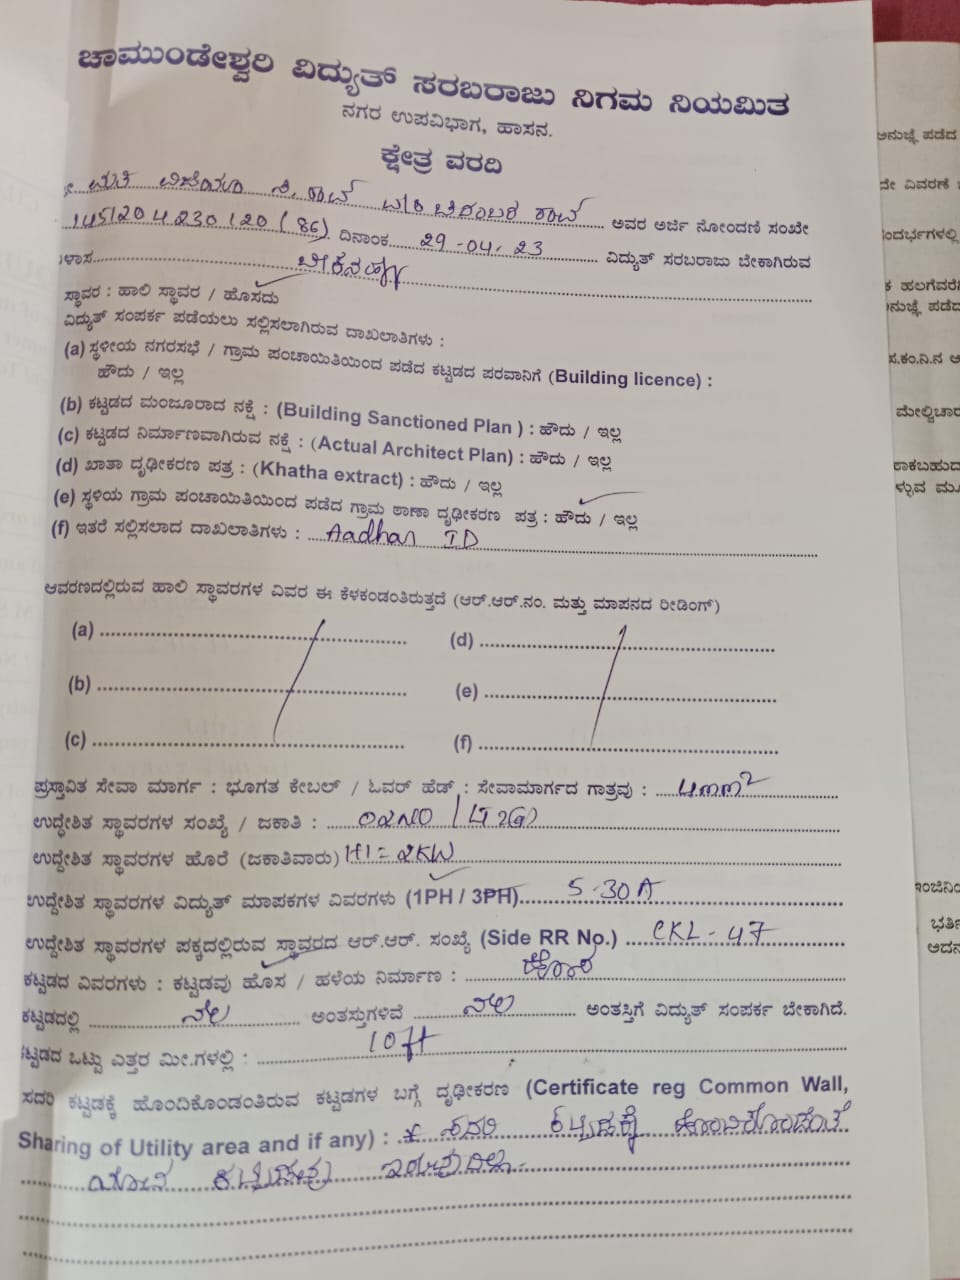 ಚಾಮುಂಡೇಶ್ವರಿ ವಿದ್ಯುತ್ ಸರಬರಾಜು ನಿಗಮ ನಿಯಮಿತ
ನಗರ ಉಪವಿಭಾಗ, ಹಾಸನ.
ಕ್ಷೇತ್ರ ವರದಿ
ಅವರ ಅರ್ಜಿ ನೋಂದಣಿ ಸಂಖೇ
145120423012 0 (86) ದಿನಾಂಕ 29-04-23 ವಿದ್ಯುತ್ ಸರಬರಾಜು ಬೇಕಾಗಿರುವ
ಸ್ಥಾವರ : ಹಾಲಿ ಸ್ಥಾವರ / ಹೊಸದು
ವಿದ್ಯುತ್ ಸಂಪರ್ಕ ಪಡೆಯಲು ಸಲ್ಲಿಸಲಾಗಿರುವ ದಾಖಲಾತಿಗಳು :
(a) ಸ್ಥಳೀಯ ನಗರಸಭೆ / ಗ್ರಾಮ ಪಂಚಾಯಿತಿಯಿಂದ ಪಡೆದ ಕಟ್ಟಡದ ಪರವಾನಿಗೆ (Building licence) :
ಹೌದು / ಇಲ್ಲ
(b) ಕಟ್ಟಡದ ಮಂಜೂರಾದ ನಕ್ಷೆ : (Building Sanctioned Plan ) : ಹೌದು / ಇಲ್ಲ
(c) ಕಟ್ಟಡದ ನಿರ್ಮಾಣವಾಗಿರುವ ನಕ್ಷೆ : (Actual Architect Plan) : ಹೌದು / ಇಲ್ಲ
(d) ಖಾತಾ ದೃಢೀಕರಣ ಪತ್ರ : (Khatha extract) : ಹೌದು / ಇಲ್ಲ
(e) ಸ್ಥಳಿಯ ಗ್ರಾಮ ಪಂಚಾಯಿತಿಯಿಂದ ಪಡೆದ ಗ್ರಾಮ ಠಾಣಾ ದೃಢೀಕರಣ ಪತ್ರ : ಹೌದು / ಇಲ್ಲ
(f) ಇತರೆ ಸಲ್ಲಿಸಲಾದ ದಾಖಲಾತಿಗಳು : Aadhar ID
ಆವರಣದಲ್ಲಿರುವ ಹಾಲಿ ಸ್ಥಾವರಗಳ ವಿವರ ಈ ಕೆಳಕಂಡಂತಿರುತ್ತದೆ (ಆರ್.ಆರ್.ನಂ. ಮತ್ತು ಮಾಪನದ ರೀಡಿಂಗ್)
(a) (d)
(b) (e)
(c) (f)
ಪ್ರಸ್ತಾವಿತ ಸೇವಾ ಮಾರ್ಗ : ಭೂಗತ ಕೇಬಲ್ / ಓವರ್ ಹೆಡ್ : ಸೇವಾಮಾರ್ಗದ ಗಾತ್ರವು : 4mm²
ಉದ್ಧೇಶಿತ ಸ್ಥಾವರಗಳ ಸಂಖ್ಯೆ / ಜಕಾತಿ :
ಉದ್ದೇಶಿತ ಸ್ಥಾವರಗಳ ಹೊರೆ (ಜಕಾತಿವಾರು) Hl = 2KW
ಉದ್ದೇಶಿತ ಸ್ಥಾವರಗಳ ವಿದ್ಯುತ್ ಮಾಪಕಗಳ ವಿವರಗಳು (1PH / 3PH) 5-30A
ಉದ್ದೇಶಿತ ಸ್ಥಾವರಗಳ ಪಕ್ಕದಲ್ಲಿರುವ ಸ್ಥಾವರದ ಆರ್.ಆರ್. ಸಂಖ್ಯೆ (Side RR No.) CKL-47
ಕಟ್ಟಡದ ವಿವರಗಳು : ಕಟ್ಟಡವು ಹೊಸ / ಹಳೆಯ ನಿರ್ಮಾಣ : ಹೊಸ
ಕಟ್ಟಡದಲ್ಲಿ ನೆಲ ಅಂತಸ್ತುಗಳಿವೆ ನೆಲ ಅಂತಸ್ತಿಗೆ ವಿದ್ಯುತ್ ಸಂಪರ್ಕ ಬೇಕಾಗಿದೆ.
ಕಟ್ಟಡದ ಒಟ್ಟು ಎತ್ತರ ಮೀ.ಗಳಲ್ಲಿ : 10ft
ಸದರಿ ಕಟ್ಟಡಕ್ಕೆ ಹೊಂದಿಕೊಂಡಂತಿರುವ ಕಟ್ಟಡಗಳ ಬಗ್ಗೆ ದೃಢೀಕರಣ (Certificate reg Common Wall,
Sharing of Utility area and if any) : ಸದರಿ ಕಟ್ಟಡಕ್ಕೆ ಹೊಂದಿಕೊಂಡಂತೆ
ಯಾವ ಕಟ್ಟಡವು ಇರುವುದಿಲ್ಲ.